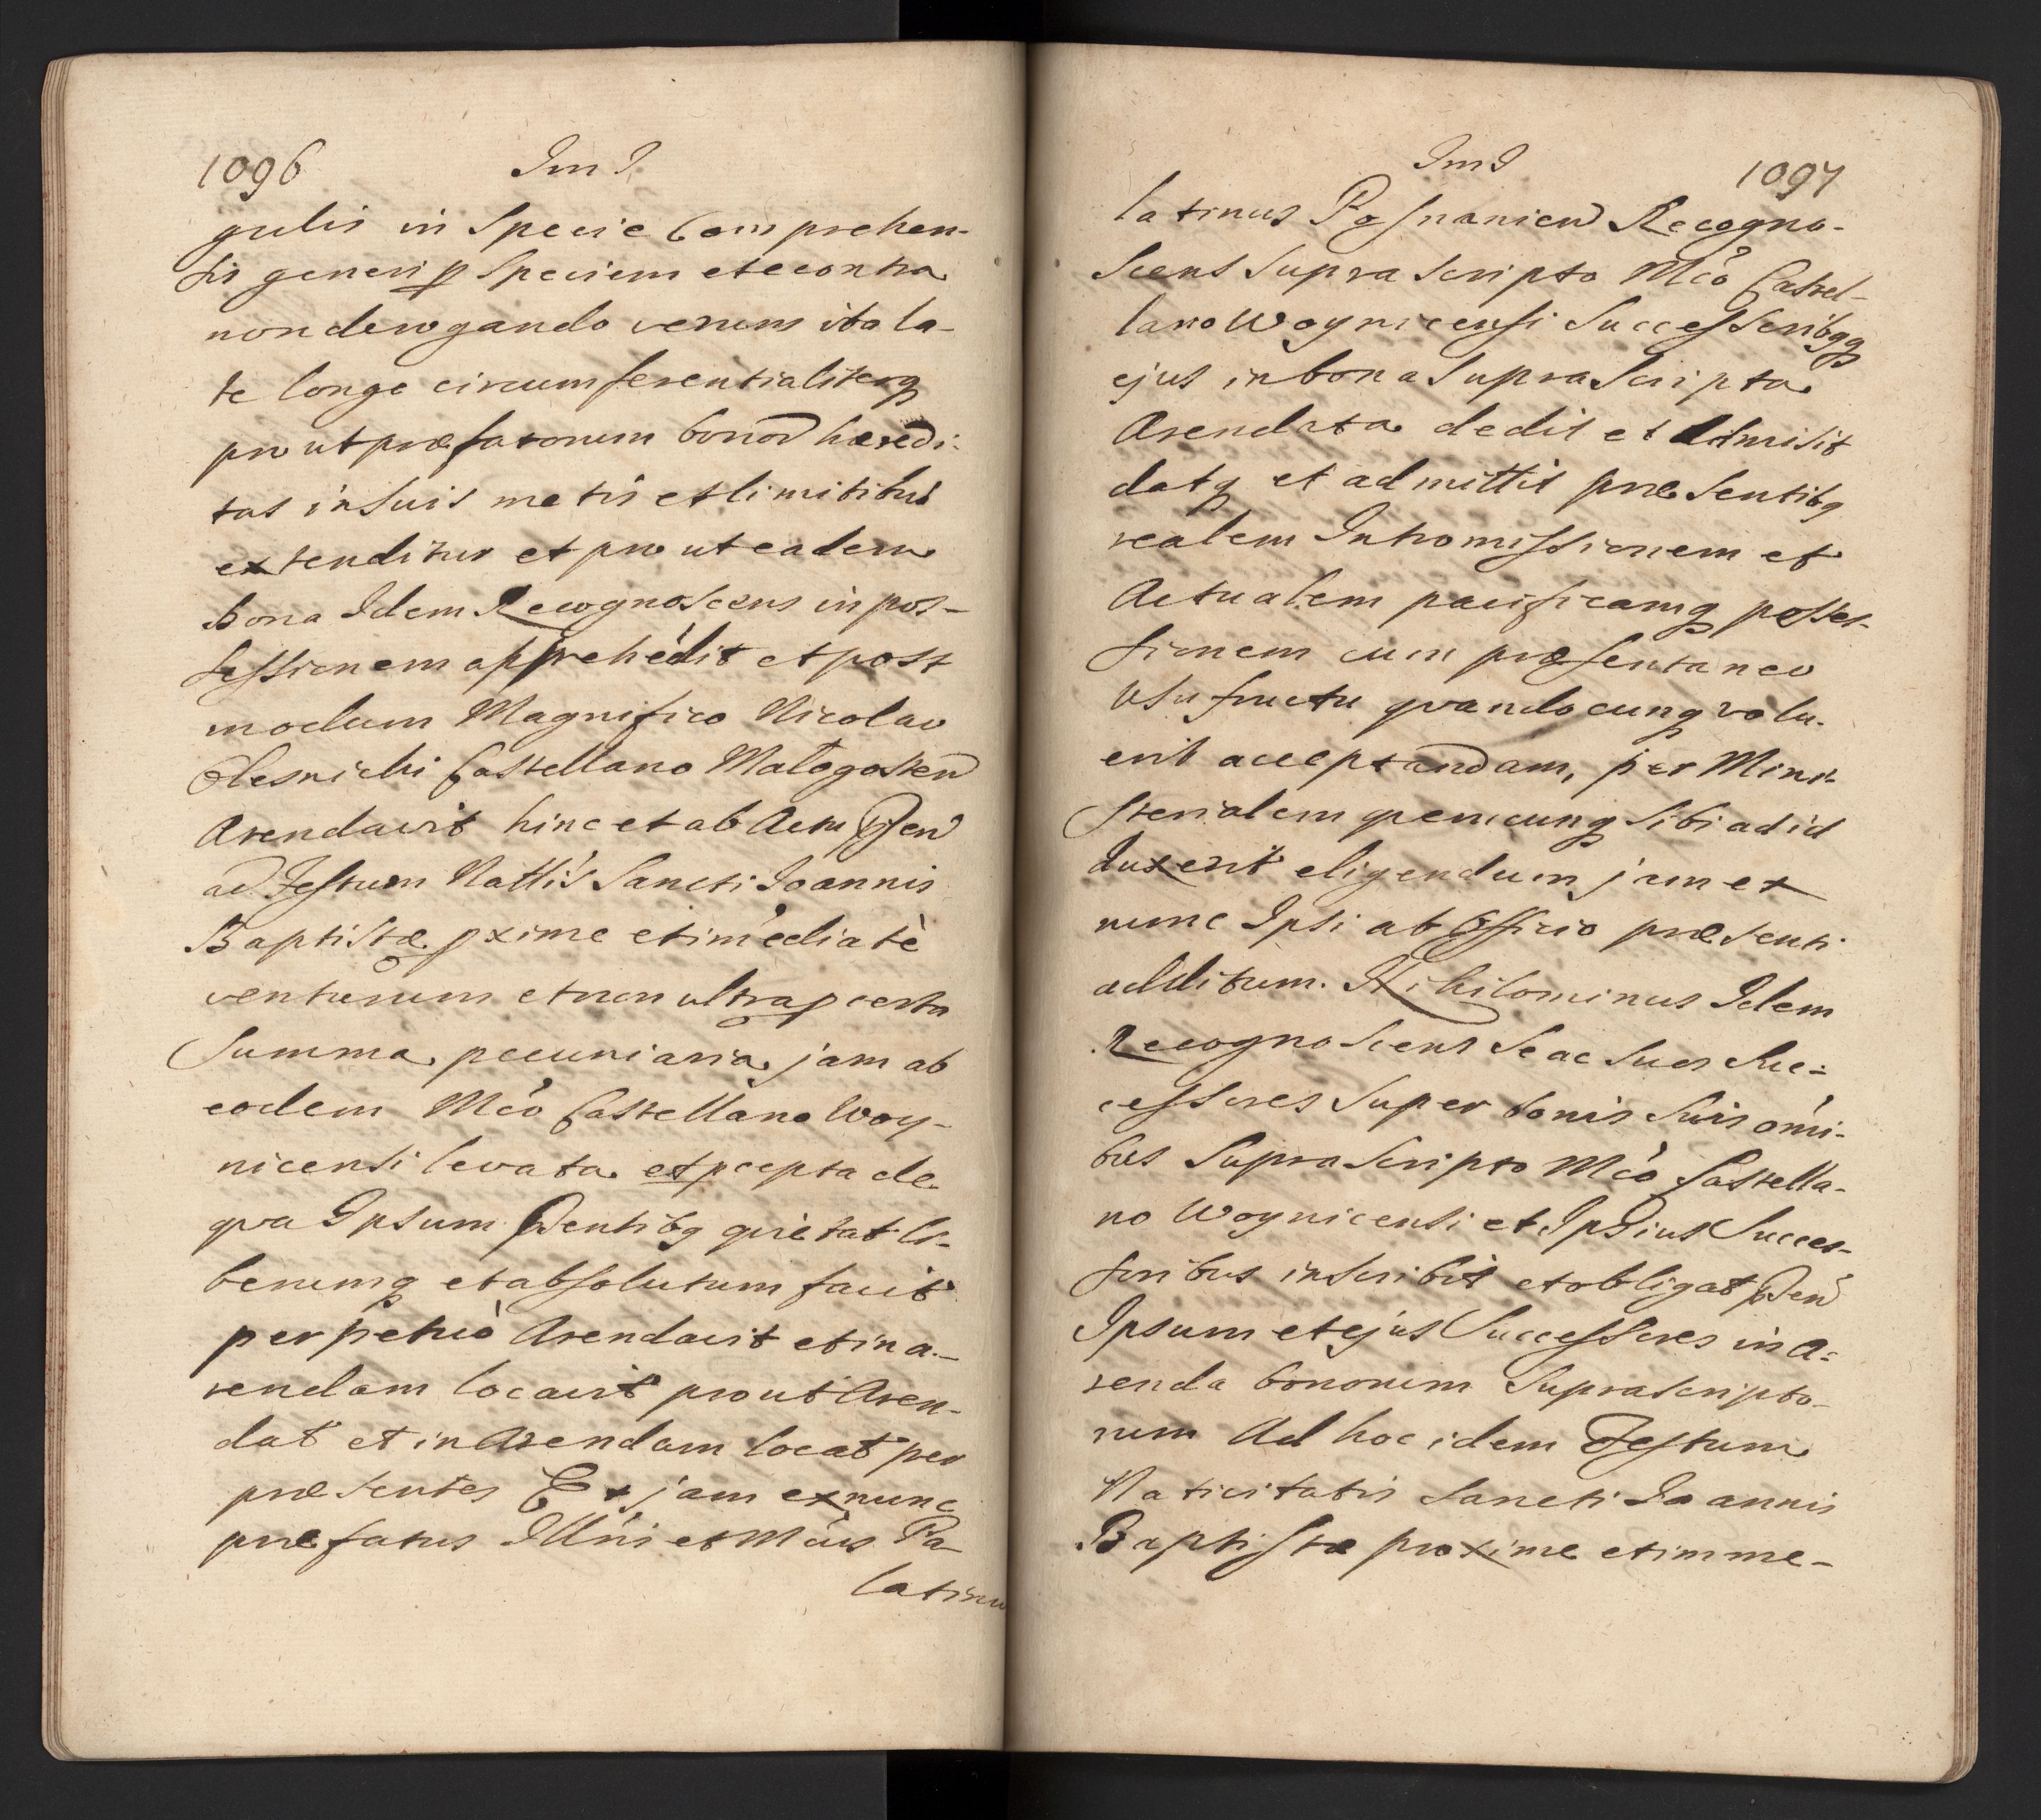 1096 Im I
gulis in Specie Comprehen-
sis generi p Speciem et econtra
non derogando verum ita la-
te longe circumferentialiterq
prout præfatorum bonor hæredi-
tas in suis metis et limitibus
extenditur et prout eadem
Bona Idem Recognoscens in pos-
sessionem apprehédit et post
modum Magnifico Nicolao
Olesnicki Castellano Małogosten
Arendavit hinc et ab Actu pñsen
ad Festum Nattis Sancti Joannis
Baptistæ pxime et imediatè
venturum et non ultra p certa
Summa pecuniaria jam ab
eodem Mco Castellano Woy-
nicensi levata et pcepta de
qva Ipsum pñsentibq qvietat li-
berumq et absolutum facit
perpetuò Arendavit et in a-
rendam locavit prout Aren-
dat et in Arendam locat per
præsentes Et jam ex nunc
præfatus Illris et Mcus Pa-
latinus
Im I 1097
latinus Posnanien Recogno-
scens supra scripto Mco Castel-
lano Woynicensi Successoribqq
ejus in bona supra Scripta
Arendata dedit et Admisit
datq et admittit præsentibq
realem Intromissionem et
Actualem pacificamq posses-
sionem cum præsentaneo
Usufructu qvandocunq volu-
erit acceptandam, per Mini-
sterialem qvemcunq sibi ad id
duxerit eligendum jam et
nunc Ipsi ab Officio præsenti
additum. Nihilominus Idem
Recognoscens Se ac Suos Suc-
cessores Super bonis Suis omi-
bus Supra Scripto Mco Castella-
no Woynicensi et Ipsius Succes-
soribus inscribit et obligat pñsen
Ipsum et ejus Successores in A-
renda bonorum Suprascripto-
rum Ad hoc idem Festum
Nativitatis Sancti Joannis
Baptistæ proxime et imme-